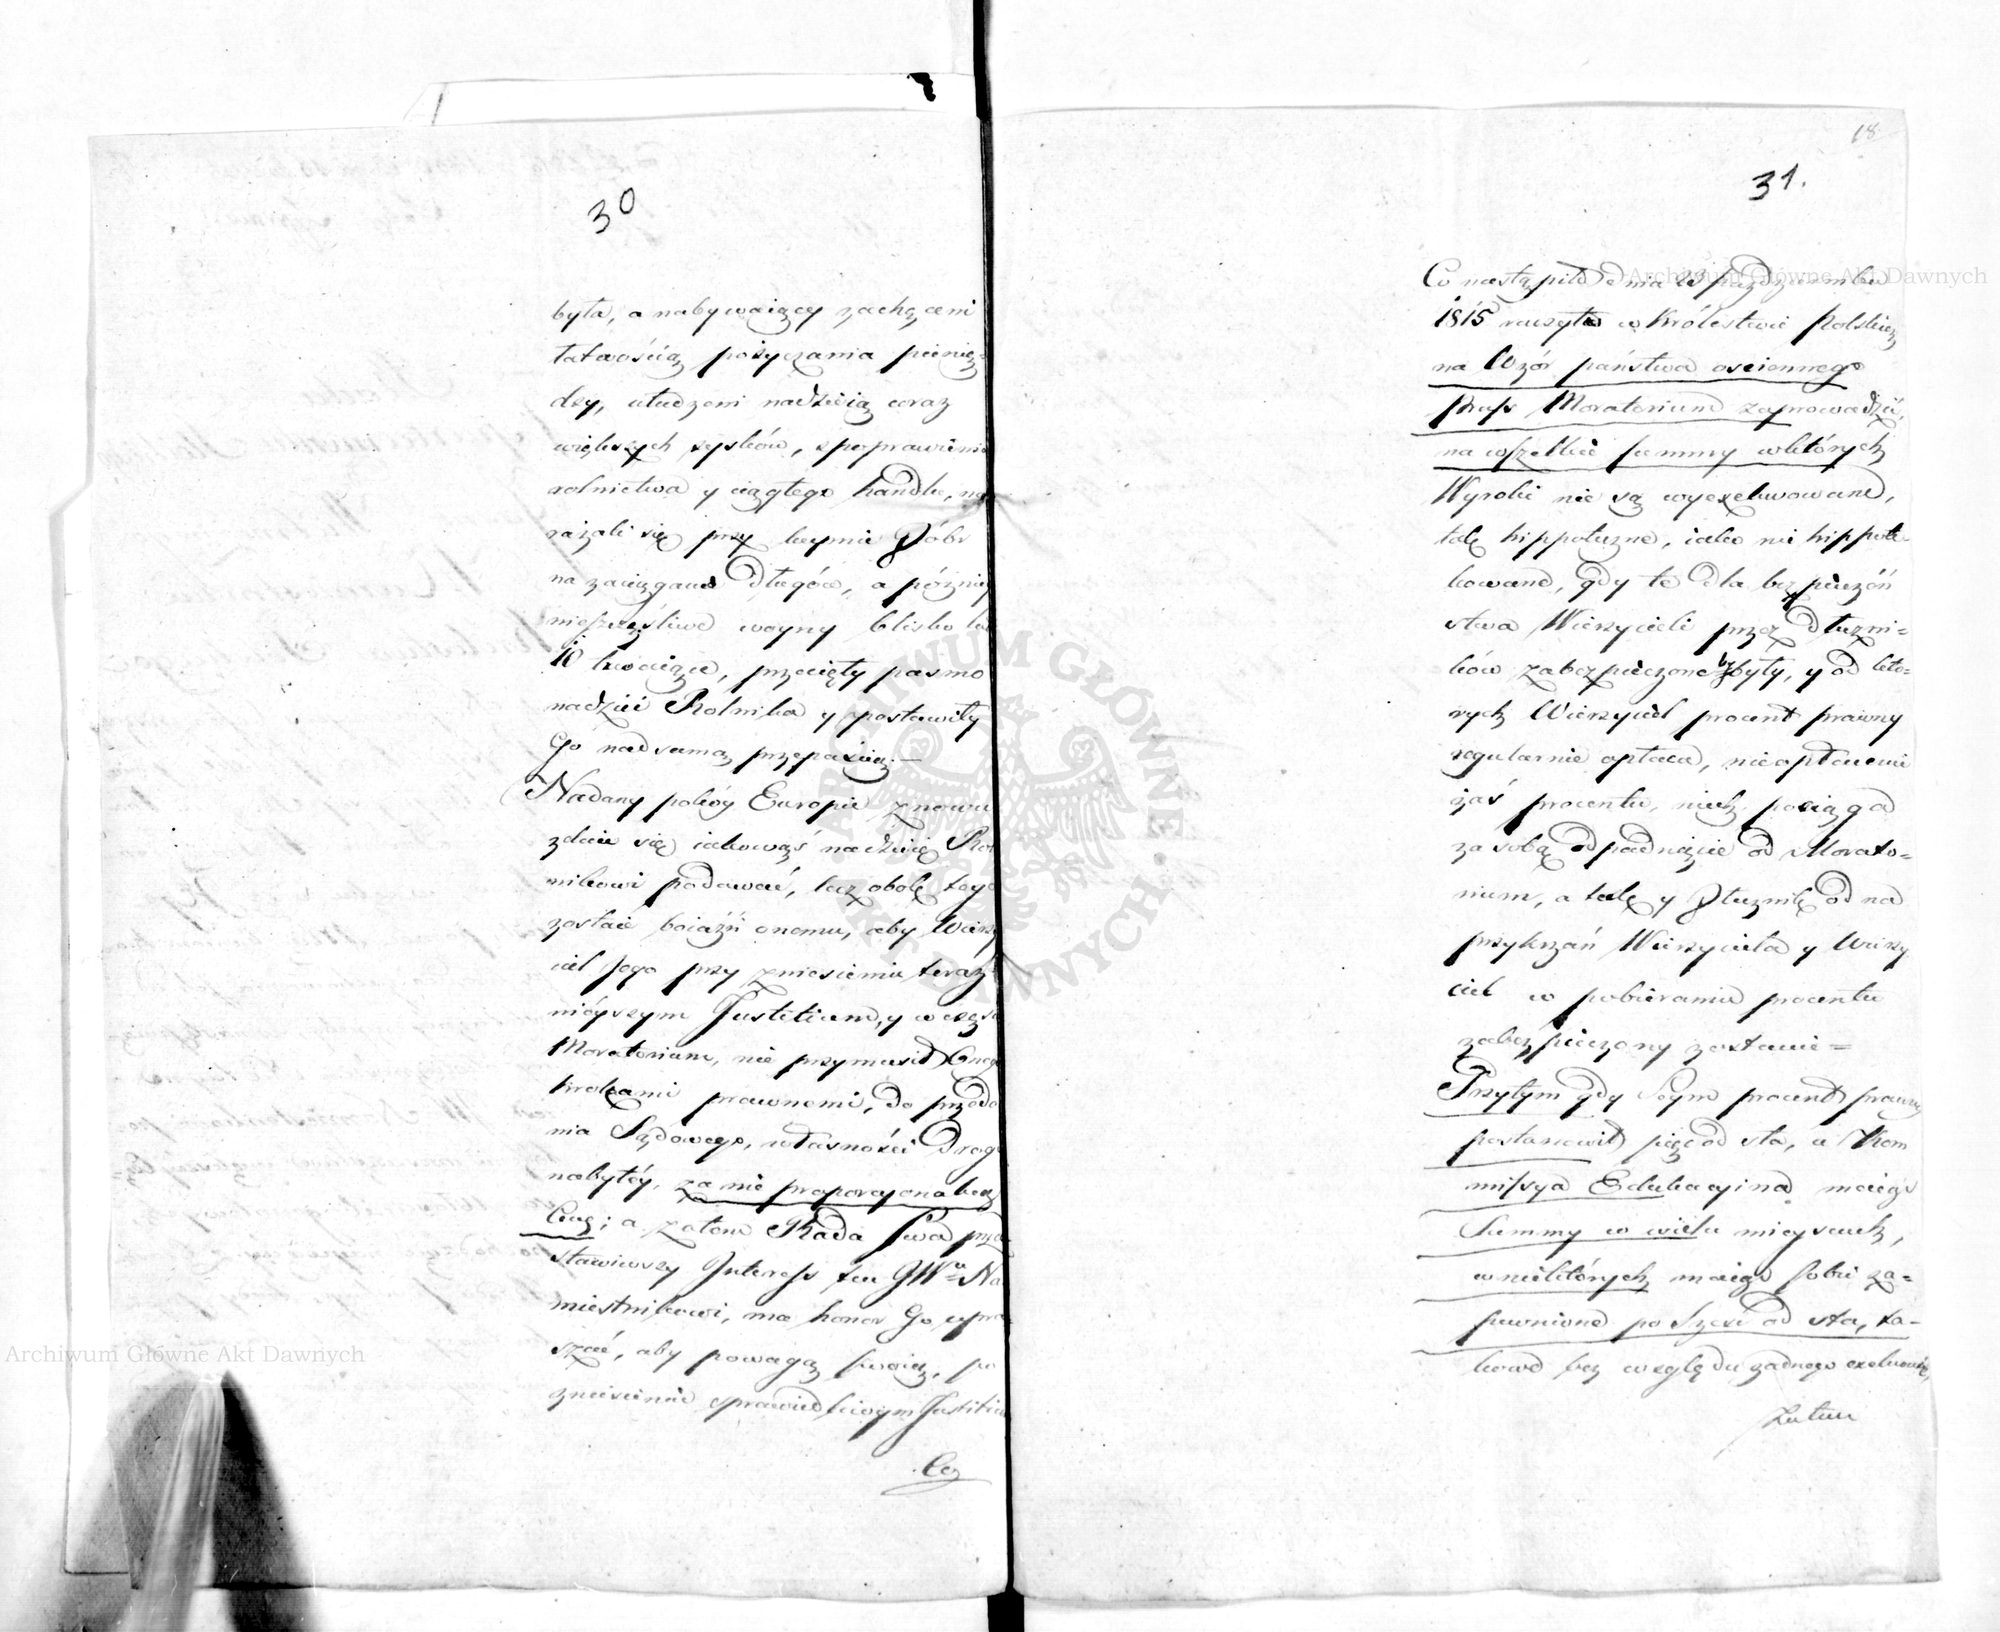 30
była, a nabywaiący zachęceni
łatwością pożyczania pienię-
dzy, ułudzeni nadzieią coraz
większych zysków, z poprawienia
rolnictwa y ciągłego handlu, na
rażali się przy kupnie Dóbr
na zaciąganie Długów, a późniey
nieszczęśliwe woyny blisko lat
10 trwaiące, przecięły pasmo
nadziei Rolnika y postawiły
Go nad samą przepaścią.—
Nadany pokóy Europie znowu
zdaie się iakowąś nadzieię Rol
nikowi podawać, lecz obok tego
zostaie boiaźń onemu, aby Wierzy
ciel Jego przy zniesieniu teraź
nieyszym Justitium, y wczęści
Moratorium, nie przymusił Onego
krokami prawnemi, do przeda
nia Sądowego, własności Drogo
nabytéy, za nie proporcyonalną
Cenę; a zatem Rada Swa przed
stawiwszy Interess ten JWu Na
miestnikowi, ma honor Go upra
szać, aby powagą swoią, po
zniesieniu sprawiedliwym Justitium
Co
18
31.
Co nastąpiło dnia Października
1815 raczył w Królestwie Polskiem
na Wzór państwa osciennego
Pruss Moratorium zaprowadzić,
na wszelkie summy w których
Wyroki nie są wyexekwowane,
tak hippoteczne, iako nie hippote
kowane, gdy te dla bezpieczeń
stwa Wierzycieli przez Dłużni=
ków zabezpieczone były, y od któ-
rych Wierzyciel procent prawny
regularnie opłaca, nieopłacenie
zaś procentu, niech pociąga
za sobą odpadnięcie od Morato=
rium, a tak y Dłużnik od na
przykrzań Wierzyciela y Wierzy
ciel w pobieraniu procentu
zabezpieczony zostanie=
Przytym gdy Seym procent prawny
postanowił pięć od sta, a Kom
missya Edukacyina maiąc
Summy w wielu mieyscach,
w niektórych maiąc sobie za=
pewnione po Sześć od sta, ta-
kowe bez względu żadnego exekwuie,
Zatem
Archiwum Główne Akt Dawnych
Archiwum Główne Akt Dawnych
ARCHIWUM GŁÓWNE AKT DAWNYCH